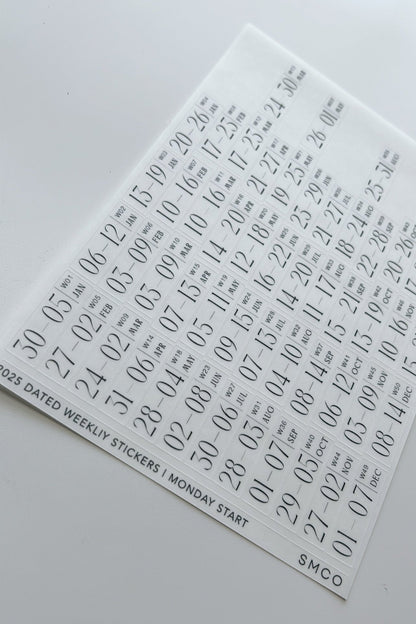 30–05 W01 JAN 06–12 W02 JAN 13–19 W03 JAN 20–26 W04 JAN
27–02 W05 FEB 03–09 W06 FEB 10–16 W07 FEB 17–23 W08 FEB
24–02 W09 MAR 03–09 W10 MAR 10–16 W11 MAR 17–23 W12 MAR 24–30 W13 MAR
31–06 W14 APR 07–13 W15 APR 14–20 W16 APR 21–27 W17 APR
28–04 W18 MAY 05–11 W19 MAY 12–18 W20 MAY 19–25 W21 MAY 26–01 W22 MAY
02–08 W23 JUN 09–15 W24 JUN 16–22 W25 JUN 23–29 W26 JUN
30–06 W27 JUL 07–13 W28 JUL 14–20 W29 JUL 21–27 W30 JUL
28–03 W31 AUG 04–10 W32 AUG 11–17 W33 AUG 18–24 W34 AUG 25–31 W35 AUG
01–07 W36 SEP 08–14 W37 SEP 15–21 W38 SEP 22–28 W39 SEP
29–05 W40 OCT 06–12 W41 OCT 13–19 W42 OCT
27–02 W44 NOV 03–09 W45 NOV
01–07 W49 DEC 08–14 W50 DEC
2025 DATED WEEKLIY STICKERS | MONDAY START
SMCO